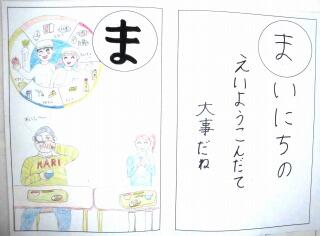 ま
おいし〜
KARI
まいにちの
えいようこんだて
大事だね